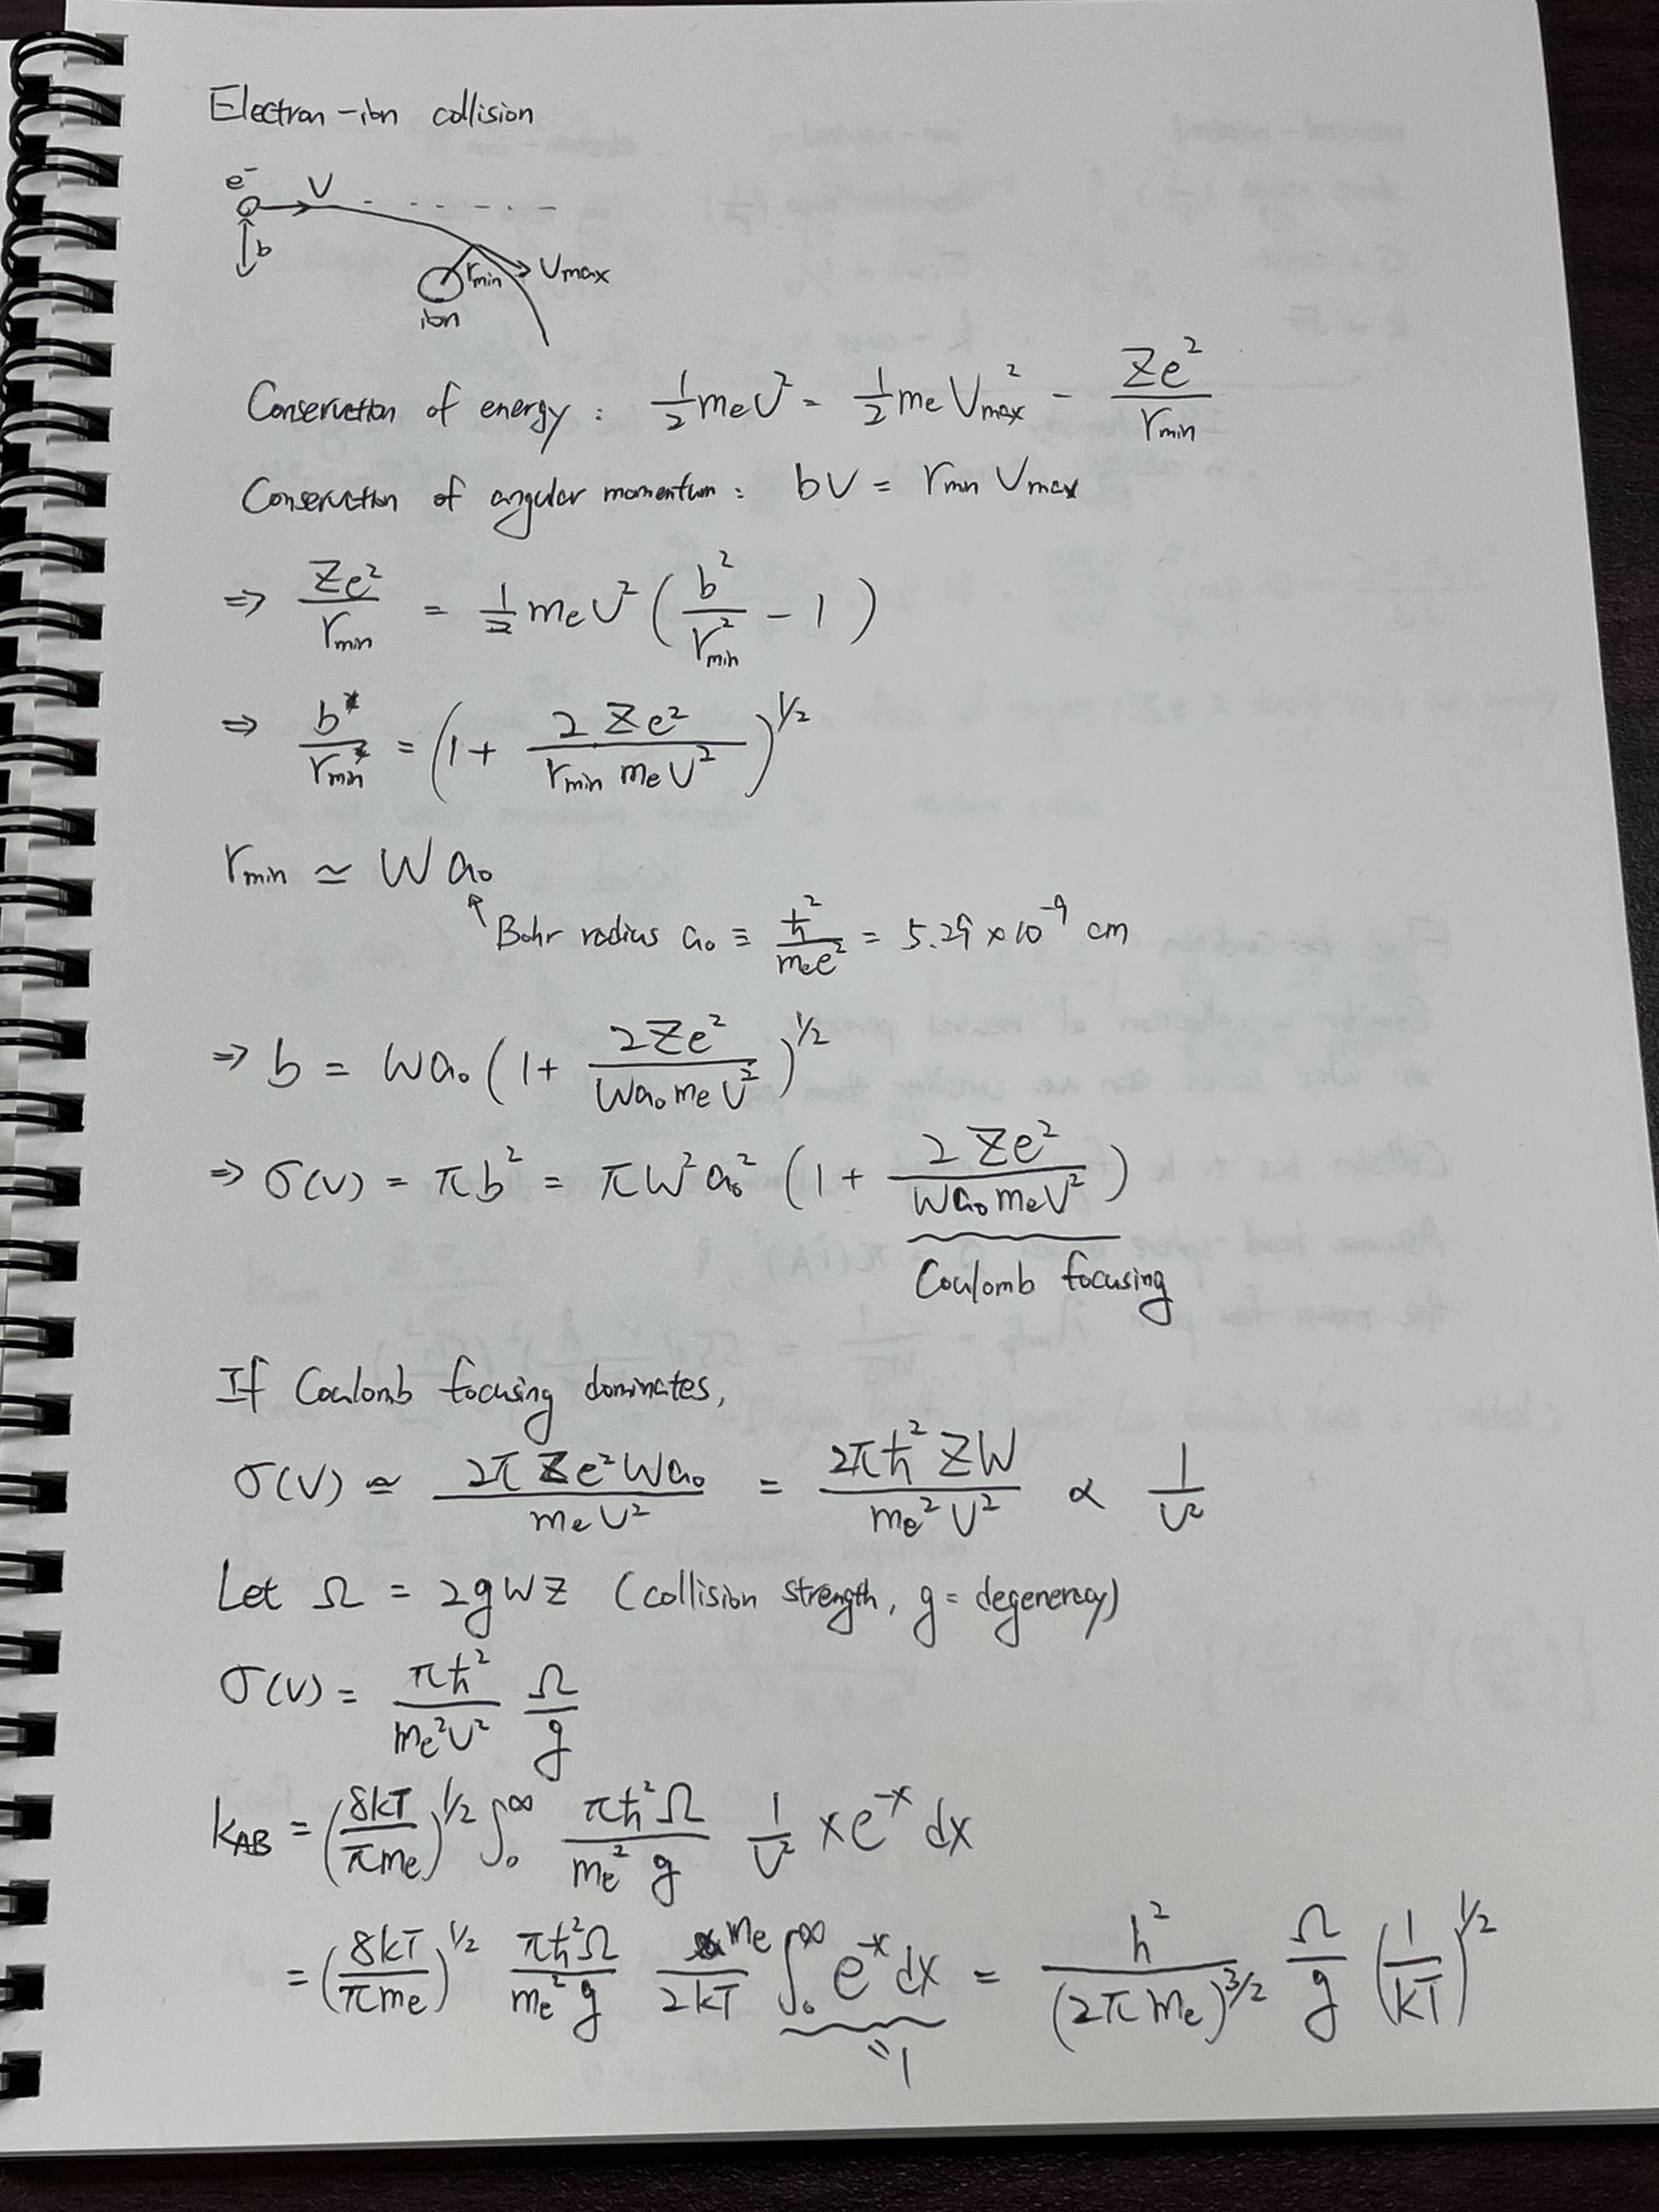 Electron-ion collision
e⁻ V
b
rmin Vmax
ion
Conservation of energy : 1/2 me V² = 1/2 me Vmax² - Ze²/rmin
Conservation of angular momentum : bV = rmin Vmax
⇒ Ze²/rmin = 1/2 me V² (b²/rmin² - 1)
⇒ b/rmin = (1 + 2Ze²/(rmin me V²))^1/2
rmin ≃ W a₀
↑ Bohr radius a₀ ≡ ħ²/(me e²) = 5.29 × 10⁻⁹ cm
⇒ b = Wa₀ (1 + 2Ze²/(Wa₀ me V²))^1/2
⇒ σ(V) = πb² = πW²a₀² (1 + 2Ze²/(Wa₀ me V²))
Coulomb focusing
If Coulomb focusing dominates,
σ(V) ≃ 2πZe²Wa₀/(me V²) = 2πħ²ZW/(me² V²) ∝ 1/V²
Let Ω = 2gWZ (collision strength, g = degeneracy)
σ(V) = πħ²/(me²V²) Ω/g
kAB = (8kT/πme)^1/2 ∫₀^∞ πħ²Ω/(me² g) 1/V² x e^-x dx
= (8kT/πme)^1/2 πħ²Ω/(me² g) me/2kT ∫₀^∞ e^-x dx = h²/(2πme)^3/2 Ω/g (1/kT)^1/2
"1